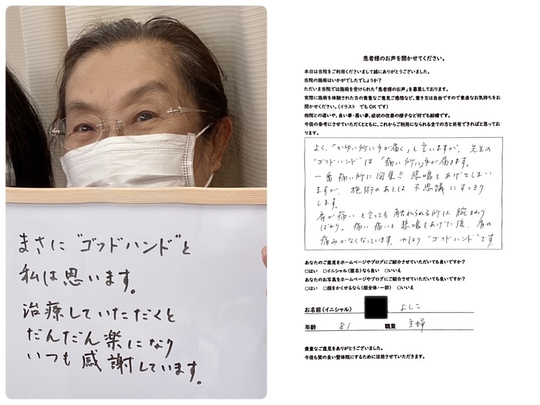 まさに"ゴッドハンド"と
私は思います。
治療していただくと
だんだん楽になり
いつも感謝しています。
患者様のお声を聞かせてください。
本日は当院をご利用くださいまして誠にありがとうございました。
当院の施術はいかがでしたでしょうか？
ただいま当院では施術を受けられた「患者様のお声」を募集しております。
実際に施術を体験された方の貴重なご意見ご感想など、書き方は自由ですので素直なお気持ちをお
聞かせください。(イラスト でもOKです)
他院との違いや、良い事・悪い事、症状の改善の様子など何でも結構です。
今後の参考にさせていただくとともに、これからご利用になられる全ての方と共有できればと思って
おります。
よく、「かゆい所に手が届く」と言いますが、先生の
"ゴッドハンド"は「痛い所に」手が届きます。
一番痛い所に図星!! 悲鳴をあげてしまい
ますが、施術のあとは不思議にすっきり
します。
肩が痛いと言っても触れられる所は腕まわり
ばかり。痛い痛いと悲鳴をあげた後、肩の
痛みがなくなっています。やはり"ゴッドハンド"です
あなたのご意見をホームページやブログにご紹介させていただいても良いですか？
□はい □イニシャル(匿名)なら良い □いいえ
あなたのお写真をホームページやブログにご紹介させていただいても良いですか？
□はい □顔をかくせるなら(顔全体・一部) □いいえ
お名前(イニシャル) よしこ
年齢 81 職業 主婦
貴重なご意見をありがとうございました。
今後も質の良い整体院にするために活用させていただきます。